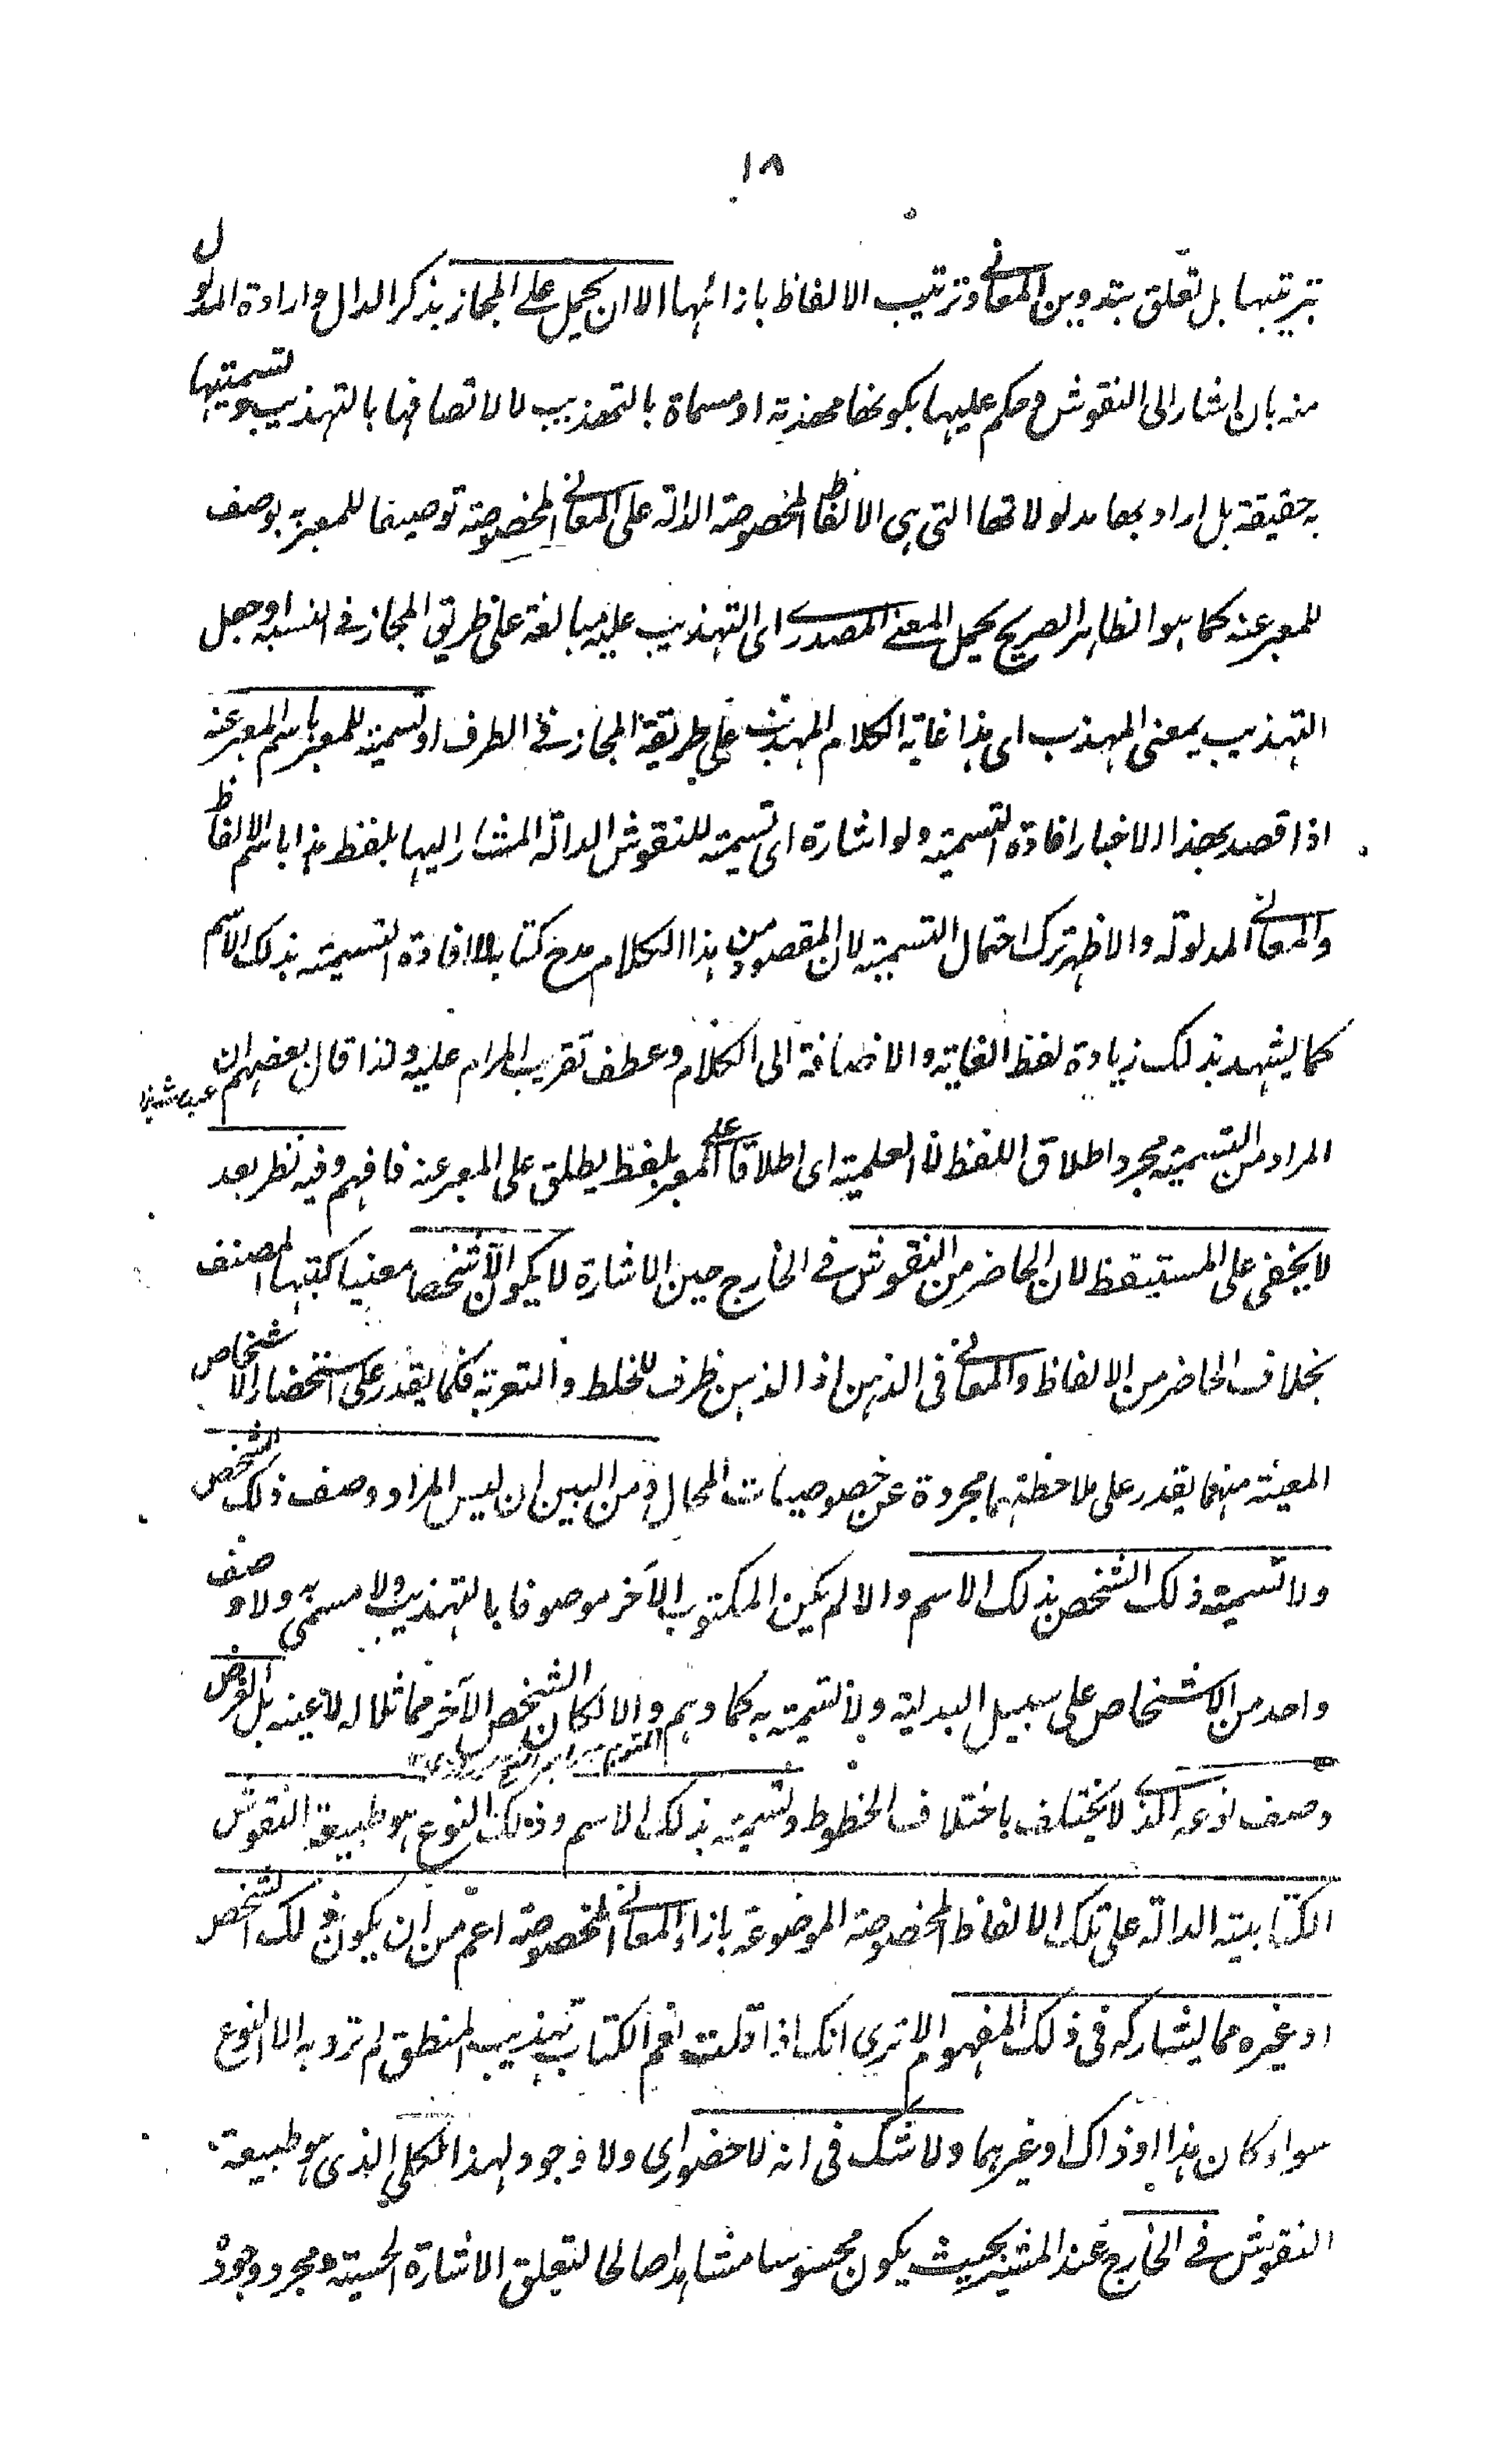 ١٨
بترتيبها بل تعلق بتدوين المعاني وترتيب الالفاظ بازائها الا ان يحمل على المجاز بذكر الدال وارادة المدلول
منه بان اشار الى النقوش وحكم عليها بكونها مهذبة او مسماة بالتهذيب لا لاتصافها بالتهذيب وتسميتها
به حقيقة بل اراد بها مدلولاتها التي هي الالفاظ المخصوصة الدالة على المعاني المخصوصة توصيفا للمعبر به بوصف
للمعبر عنه كما هو الظاهر الصريح بحمل المعنى المصدري اى التهذيب عليه مبالغة على طريق المجاز في النسبة او جعل
التهذيب بمعنى المهذب اى هذا غاية الكلام المهذب على طريقة المجاز في الطرف او تسمية للمعبر باسم المعبر عنه
اذا قصد بهذا الاخبار افادة التسمية ولو اشارة اى تسمية للنقوش الدالة المشار اليها بلفظ هذا باسم الالفاظ
والمعاني المدلولة والاظهر ترك احتمال التسمية لان المقصود من هذا الكلام مدح كتابه لا افادة التسمية بذلك الاسم
كما يشهد بذلك زيادة لفظ الغاية والاضافة الى الكلام وعطف تقريب المرام عليه ولذا قال بعضهم ان
المراد من التسمية مجرد اطلاق اللفظ لا العلمية اى اطلاقا على المعبر بلفظ يطلق على المعبر عنه فافهم وفيه نظر بعد
لا يخفى على المستيقظ لان الحاضر من النقوش في الخارج حين الاشارة لا يكون الا شخصا معينا كتبها المصنف
بخلاف الحاضر من الالفاظ والمعاني في الذهن اذ الذهن ظرف للخلط والتعرية فكما يقدر على استحضار الاشخاص
المعينة منهما يقدر على ملاحظتهما مجردة عن خصوصيات المحال ومن البين ان ليس المراد وصف ذلك الشخص
ولا تسمية ذلك الشخص بذلك الاسم والا لم يكن المكتوب الآخر موصوفا بالتهذيب ولا مسمى به ولا وصف
واحد من الاشخاص على سبيل البدلية ولا تسمية به كما وهم والا لكان الشخص الآخر مماثلا له لا عينه بل الغرض
وصف نوعه الذي لا يختلف باختلاف الخطوط وتسميته بذلك الاسم وذلك النوع هو طبيعة النقوش
الكتابية الدالة على تلك الالفاظ المخصوصة الموضوعة بازاء المعاني المخصوصة اعم من ان يكون ذلك الشخص
او غيره مما يشاركه في ذلك المفهوم الا ترى انك اذا قلت نعم الكتاب تهذيب المنطق لم ترد به الا النوع
سواء كان هذا او ذاك او غيرهما ولا شك في انه لا حضور اى ولا وجود لهذا الكلي الذي هو طبيعة
النقوش في الخارج عند المشير بحيث يكون محسوسا مشاهدا صالحا لتعلق الاشارة الحسية ومجرد وجود